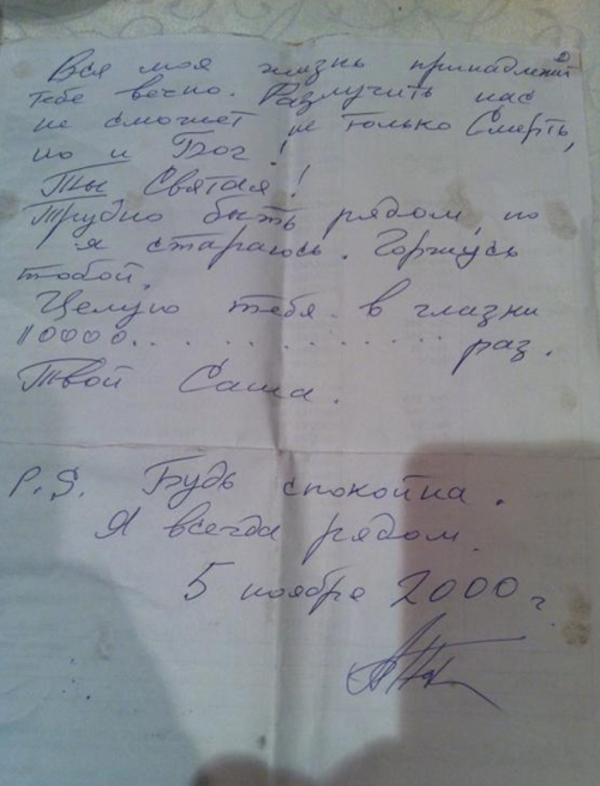 Вся моя жизнь принадлежит
тебе вечно. Разлучить нас
не сможет не только Смерть,
но и Бог!
Ты Святая!
Трудно быть рядом, но
я стараюсь. Горжусь
тобой.
Целую тебя в глазки
10000.. . . . . . . . . . . . . . раз.
Твой Саша.
P.S. Будь спокойна.
Я всегда рядом.
5 ноября 2000 г.